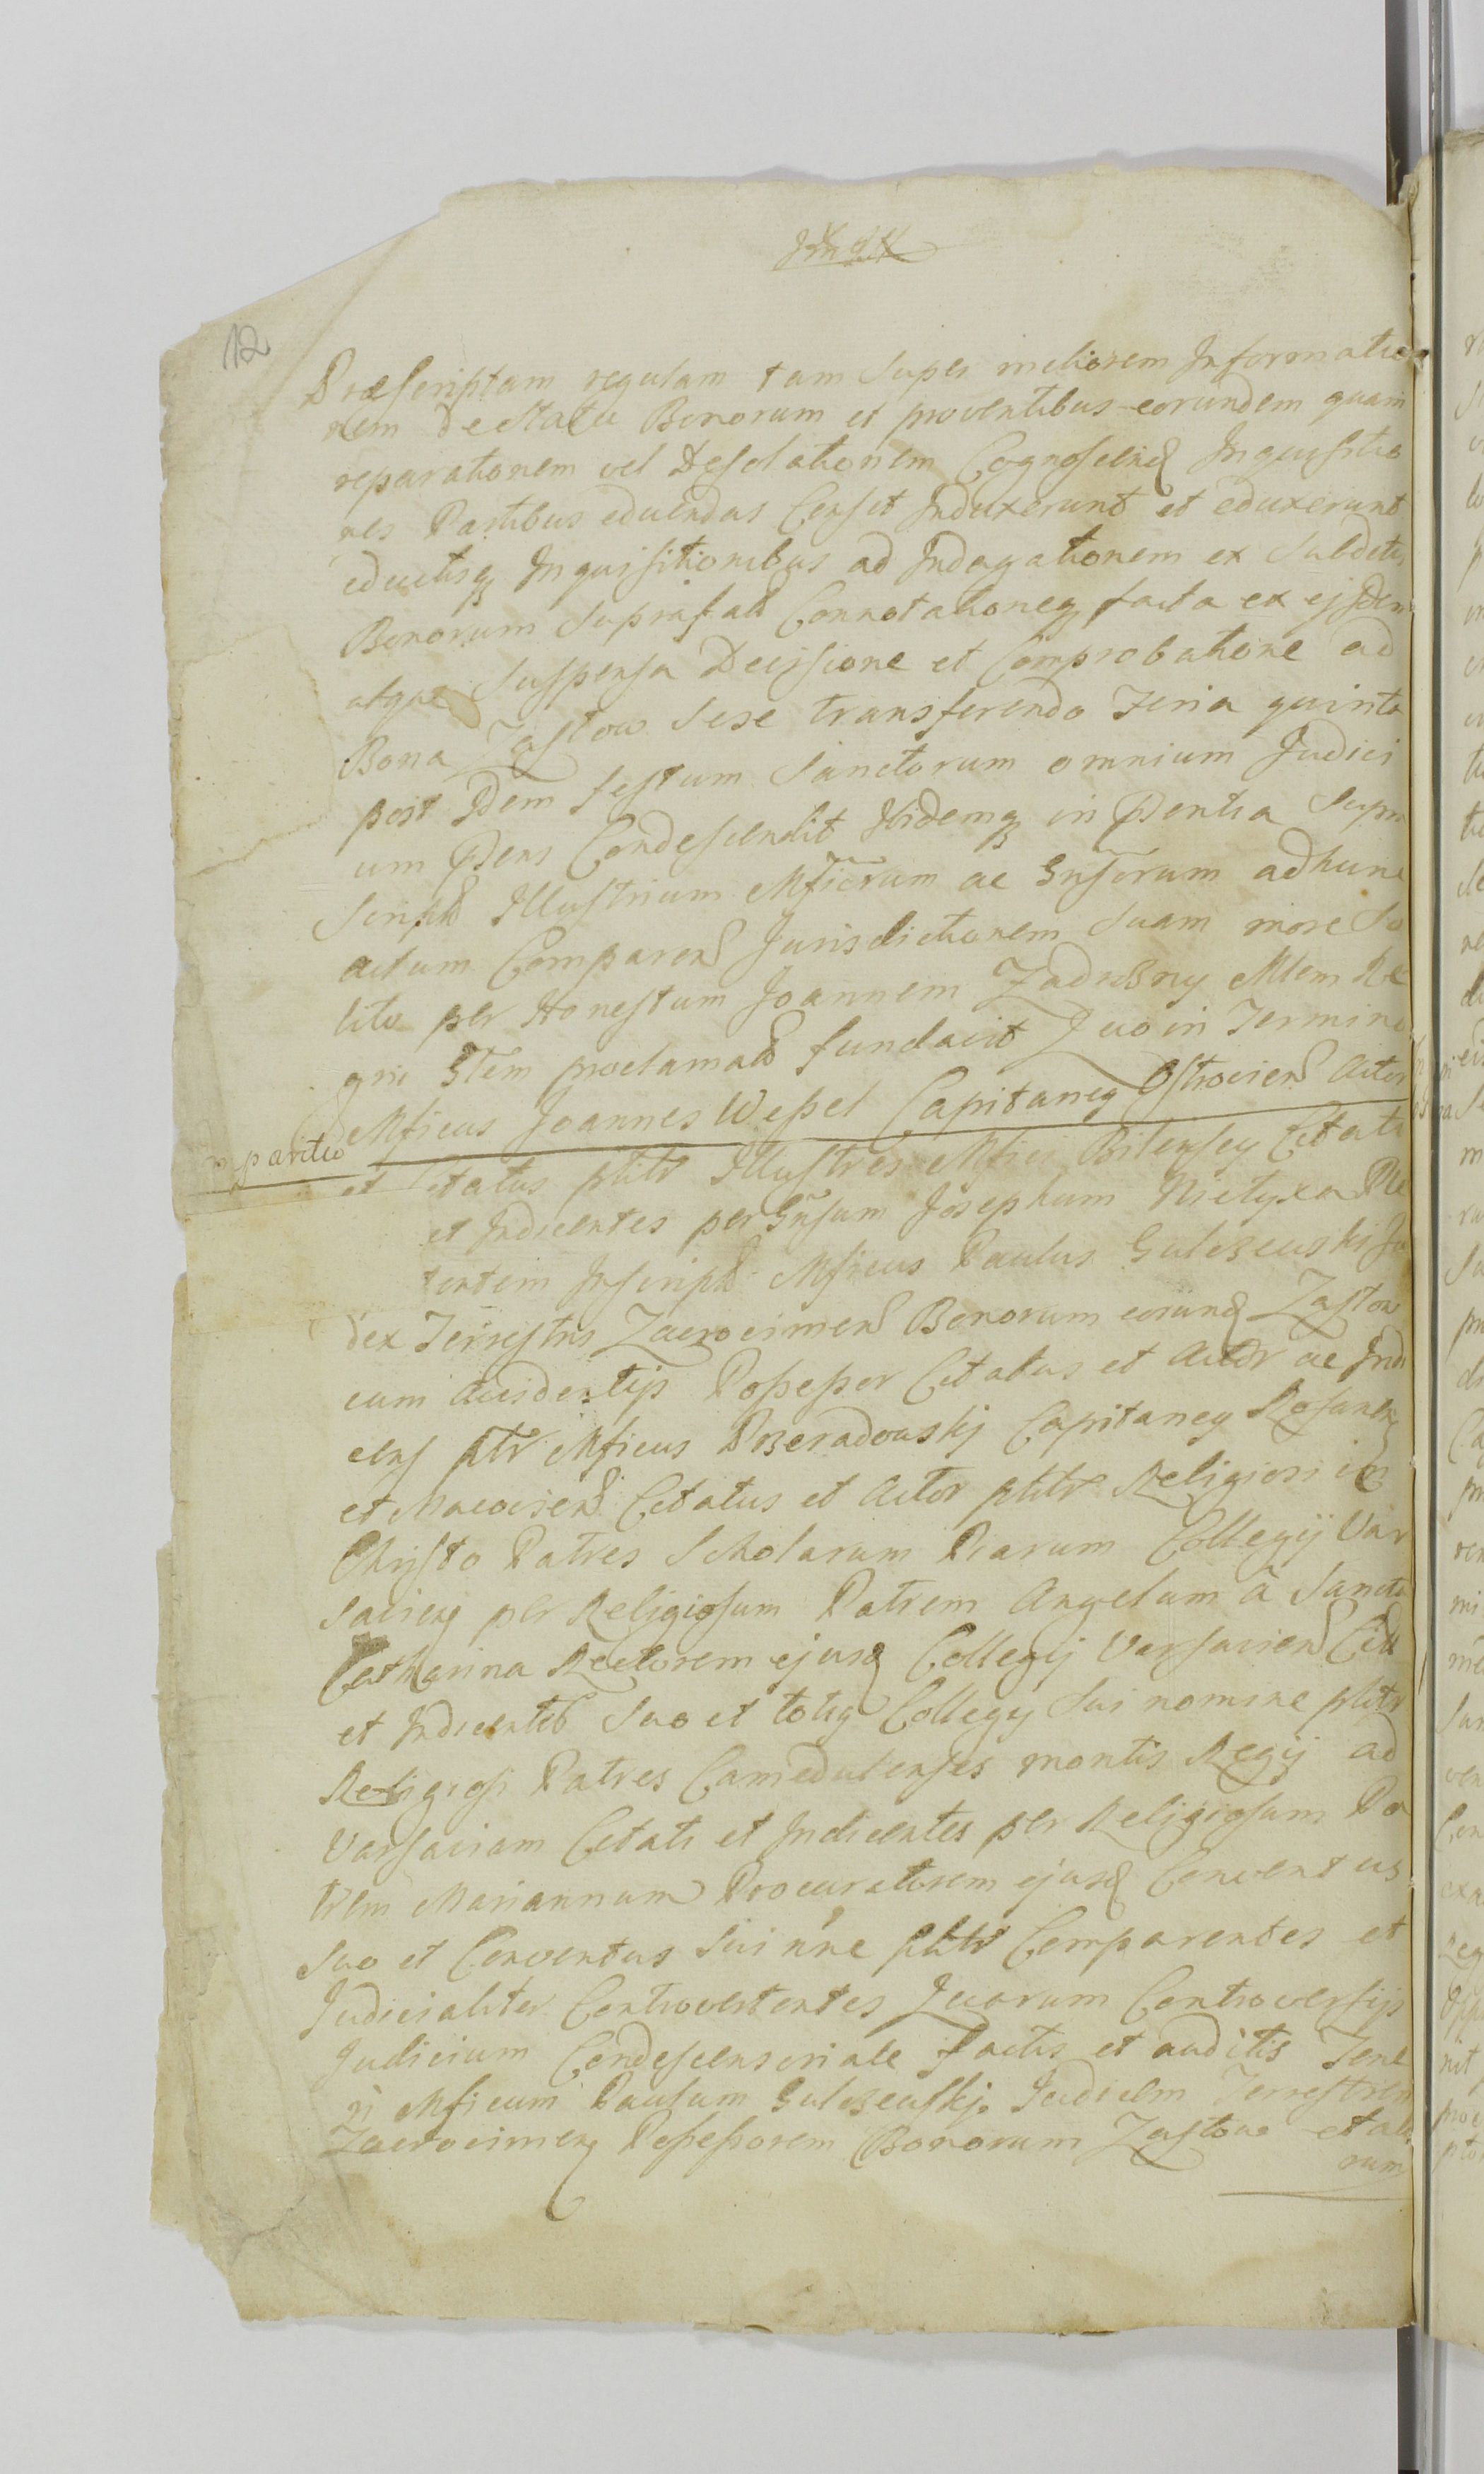 12
Præscriptam regulam tam super meliorem Informatio
nem de statu Bonorum et proventibus eorundem quam
reparationem vel Desolationem Cognoscend Inquisitio
nes Partibus educendas Censet Induxerunt et eduxerunt
eductisq Inquisitionibus ad Indagationem ex Subditis
Bonorum Suprafat Connotationeq facta ex ejsdem
atque Suspensa Decisione et Comprobatione ad
Bona Zastow Sese transferendo Feria quinta
post Idem festum Sanctorum omnium Judici
um Pens Condescendit Ibidemq in Pentia Supra
Script Illustrium Mficorum ac Gnsorum ad hunc
actum Comparen Jurisdictionem Suam more So
lito per Honestum Joannem Zadrozny Mlem Re
gni Glem proclamat fundavit Quo in Termino
Mficus Joannes Wessel Capitaneq Ostrovien Actor
mparitio
et Citatus ptitr Illustres Mfici Bilinsey Citati
et Indicentes per Gnsum Josephum Nietyxa Ple
tentem Inscript Mficus Paulus Gulczewski Ju
dex Terrestris Zacrocimen Bonorum eorund Zastow
cum Attinentijs Possessor Citatus et Actor ac Indi
cens ptr Mficus Przeradowskj Capitaneq Rosanen
et Macovien Citatus et Actor ptitr Religiosi in
Christo Patres Scholarum Piarum Collegij Var
savien per Religiosum Patrem Angelum à Sancta
Catharina Rectorem ejusd Collegij Varsavien Citt
et Indicentib Suo et totiq Collegij Sui nomine ptitr
Religiosi Patres Camedulenses montis Regij ad
Varsaviam Citati et Indicentes per Religiosum Pa
trem Mariannum Procuratorem ejusd Conventus
Suo et Conventus Sui nne ptitr Comparentes et
Judicialiter Controvertentes Quorum Controversijs
Judicium Condescensoriale factis et auditis Tene
ri Mficum Paulum Gulczewskj Judicem Terrestrem
Zacrocimen Possessorem Bonorum Zastow et ali
rum